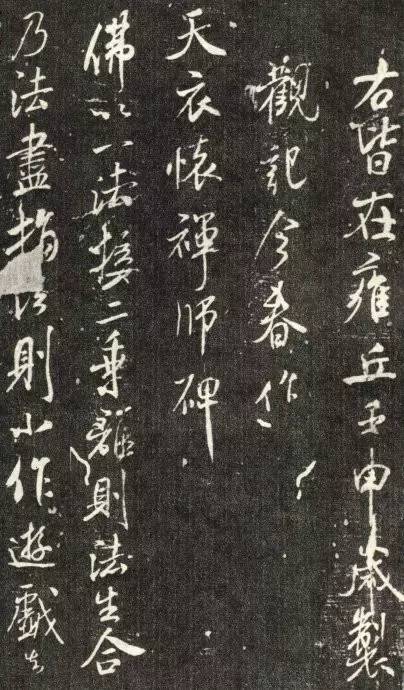 右皆在雍丘壬申歲製
觀記今春作
天衣懷禪師碑
佛以一法接二乘離則法生合
乃法盡指法則小作遊戲